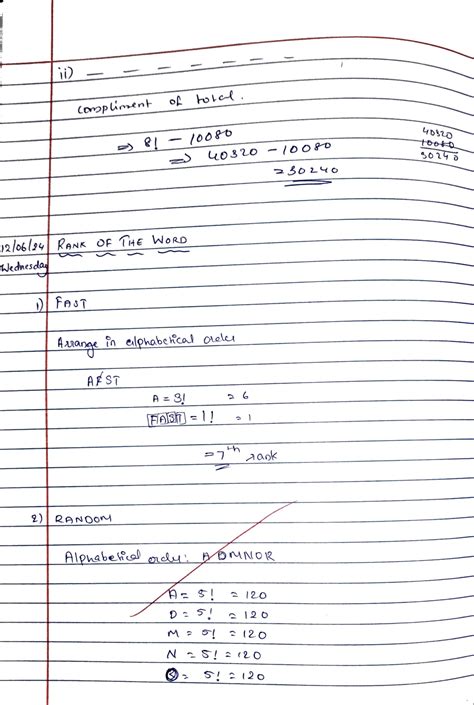 ii) — — — — — — — —
Compliment of total.
⇒ 8! - 10080
⇒ 40320 - 10080
= 30240
40320
10080
30240
12/06/24
Wednesday
RANK OF THE WORD
1) FAST
Arrange in alphabetical order
AFST
A = 3! = 6
FAST = 1! = 1
= 7th rank
2) RANDOM
Alphabetical order: ADMNOR
A = 5! = 120
D = 5! = 120
M = 5! = 120
N = 5! = 120
O = 5! = 120